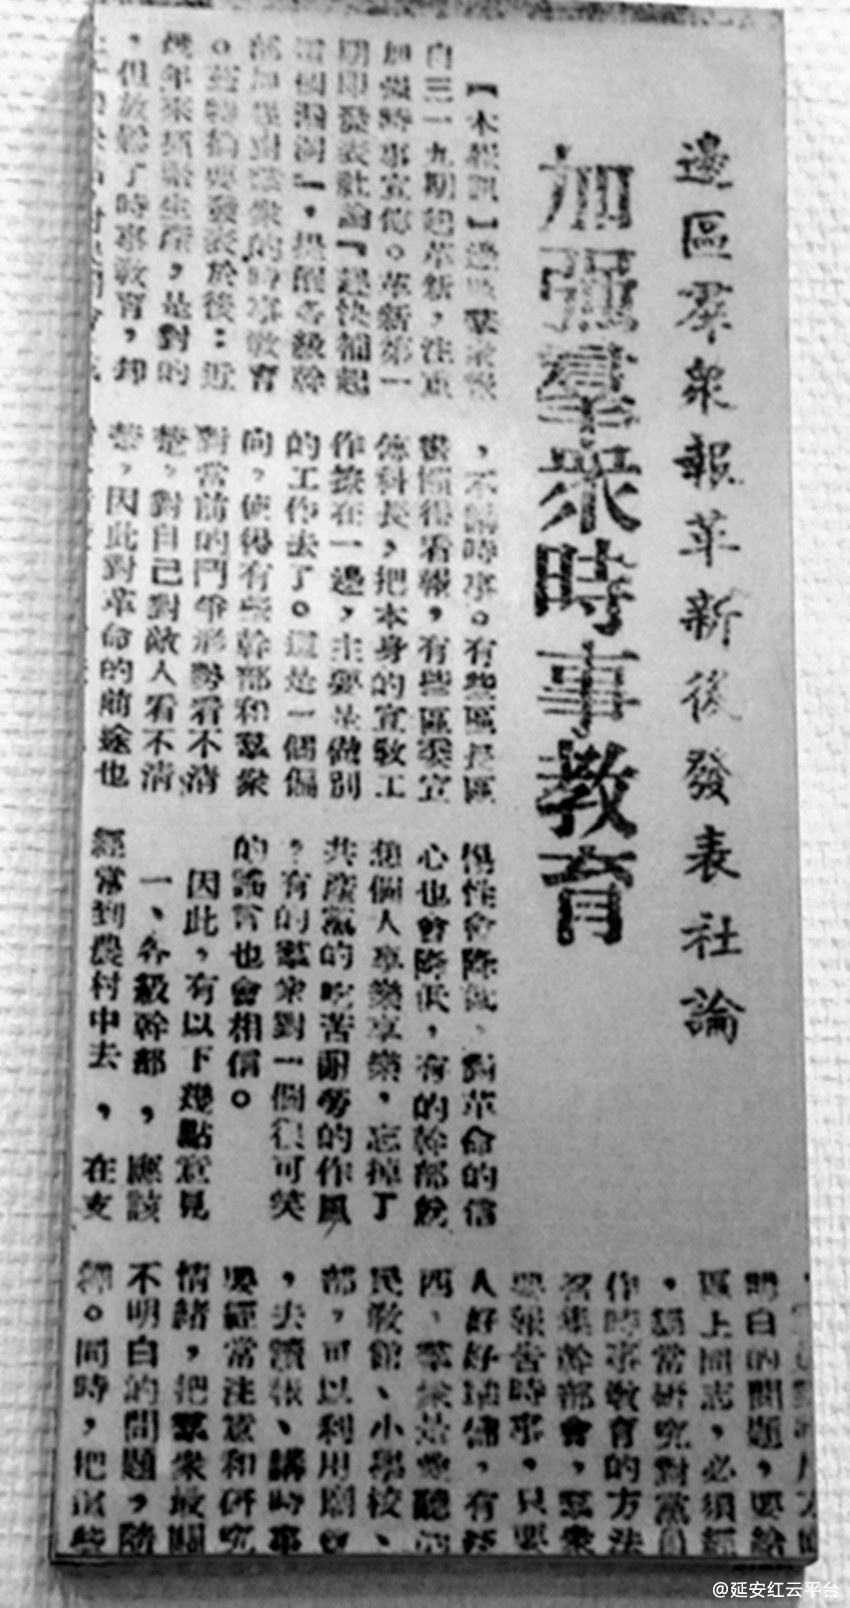 邊區羣衆報革新後發表社論
加强羣衆時事教育
【本報訊】邊區羣衆報
自三一九期起革新，注重
加强時事宣傳。革新第一
期即發表社論『趕快補起
這個漏洞』，提醒各級幹
部加强對羣衆的時事教育
。茲特摘要發表於後：近
幾年來抓緊生產，是對的
，但放鬆了時事教育，却
，不講時事。有些區長區
委懶得看報，有些區委宣
傳科長，把本身的宣教工
作撩在一邊，主要是做別
的工作去了。這是一個偏
向，使得有些幹部和羣衆
對當前的鬥爭形勢看不清
楚，對自己對敵人看不清
楚，因此對革命的前途也
惕性會降低，對革命的信
心也會降低，有的幹部就
想個人享樂享樂，忘掉了
共產黨的吃苦耐勞的作風
，有的羣衆對一個很可笑
的謠言也會相信。
因此，有以下幾點意見
一、各級幹部，應該
經常到農村中去，在支
明白的問題，要給
區上同志，必須經
，經常研究對黨員
作時事教育的方法
召集幹部會，羣衆
要報告時事。只要
人好好準備，有
四、羣衆是愛聽
民教館、小學校、
部，可以利用廟會
，去讀報、講時事
要經常注意和研究
情緒，把羣衆最關
不明白的問題，隨
釋。同時，把這些
@延安红云平台